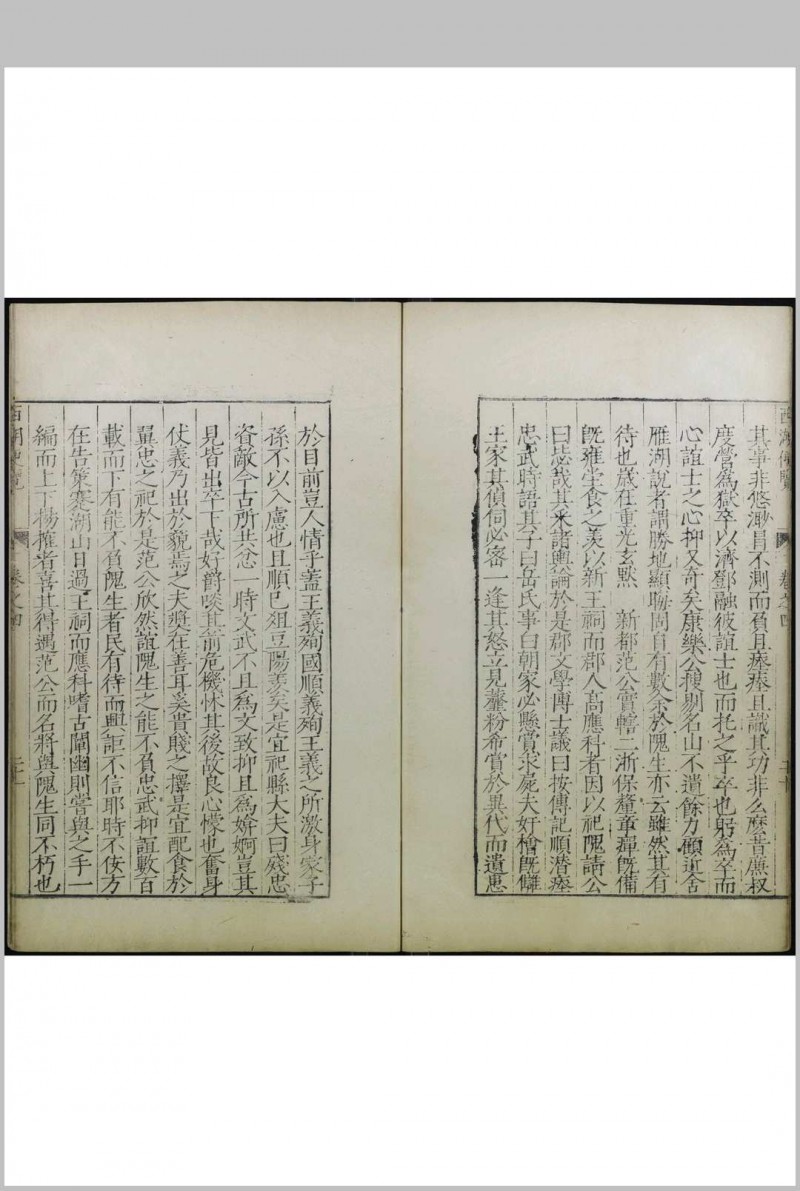 其事非悠渺昌不測而負且瘞瘞且識其功非么麼昔廡叔
度嘗爲獄卒以濟鄧融彼誼士也而托之乎卒也躬為卒而
心誼士之心抑又奇矣康樂公搜剔名山不遺餘力顧近舍
雁湖說者謂勝地顯晦問自有數余於隗生亦云雖然其有
待也歲在重光玄黙 新都范公實轄二浙保釐章癉旣備
旣雍堂食之羨以新王祠而郡人高應科者因以祀隗請公
曰悲哉其采諸輿論於是郡文學博士議曰按傳記順潛瘞
忠武時語其子曰岳氏事白朝家必懸賞求屍夫好檜旣讎
王家其偵伺必密一逢其怒立見虀粉希賞於異代而遺患
於目前豈人情乎蓋王義殉國順義殉王義之所激身家子
孫不以入慮也且順已俎豆陽羨矣是宜祀縣大夫曰殘忠
資敵今古所共忿一時文武不且爲文致抑且爲媕婀豈其
見皆出卒下哉好爵啖其前危機怵其後故良心懞也奮身
仗義乃出於藐焉之夫奬在善耳奚貴賤之擇是宜配食於
翼忠之祀於是范公欣然誼隗生之能不負忠武抑誼數百
載而下有能不負隗生者民有待而興詎不信耶時不佞方
在告策蹇湖山日過王祠而應科嗜古闡幽則嘗與之手一
編而上下揚搉者喜其得遇范公而名將與隗生同不朽也
西湖便覽 卷之四